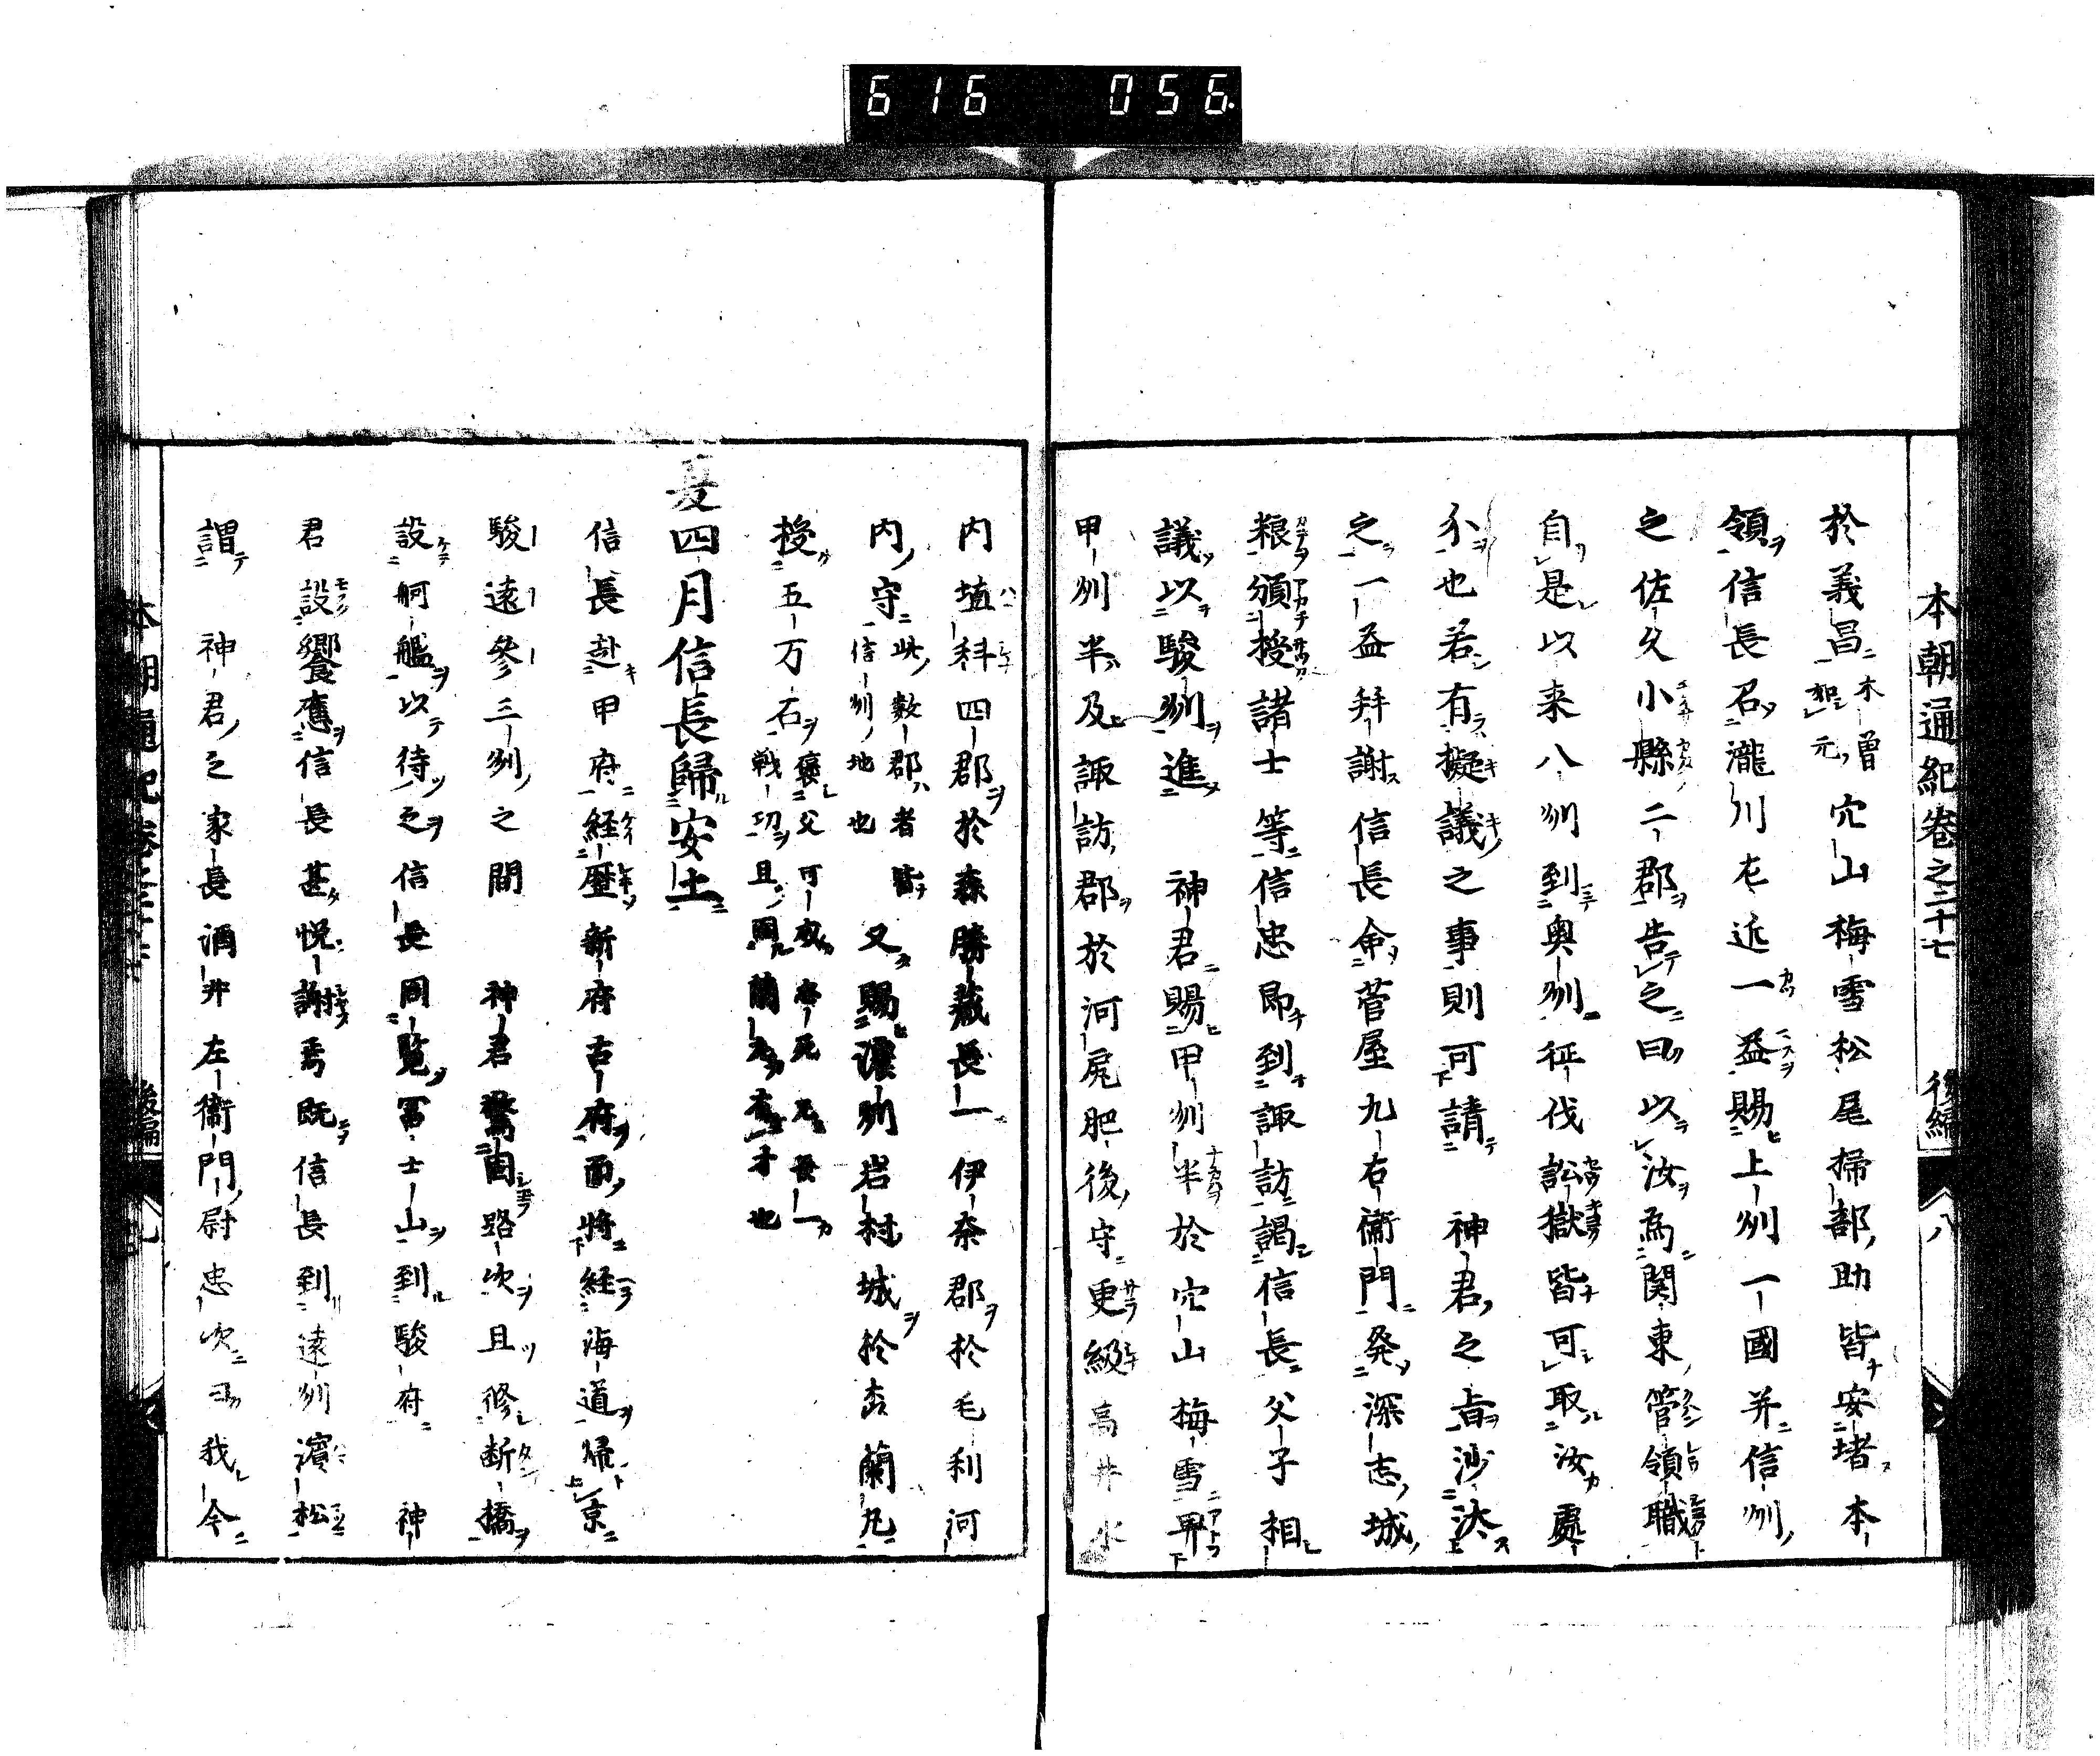 616 056.
本朝通紀卷之三十七 後編 八
於義昌木曽如元穴山梅雪松尾掃部助皆安堵本
領信長召瀧川左近一益賜上州一國并信州
之佐久小縣二郡告之曰以汝為関東管領職
自是以来八州到奥州征伐訟獄皆可取汝處
分也若有擬議之事則可請 神君之旨沙汰
之一益拜謝信長命菅屋九右衞門発深志城
粮頒授諸士等信忠即到諏訪謁信長父子相
議以駿州進 神君賜甲州半於穴山梅雪畀
甲州半及諏訪郡於河尻肥後守更級高井水
内埴科四郡於森勝藏長一伊奈郡於毛利河
内守此數郡者皆信州地也又賜濃州岩村城於森蘭丸
授五万石褒父可成
戦切且
夏四月信長歸安土
信長赴甲府経歴新府古府而将経海道帰京
駿遠參三州之間 神君警固路次且修断橋
設舸艦以待之信長周覧冨士山到駿府 神
君設饗應信長甚悦謝焉既信長到遠州濵松
謂 神君之家長酒井左衞門尉忠次曰我今